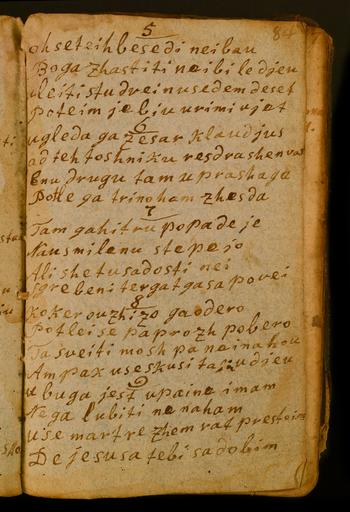 5
84
oh seteih besedi nei bau
Boga zhastiti nei bi le djeu
uleiti stu dvei nu sedem deset
Poteim je biu urimi ujet
6
ugleda ga zesar Klaudjus
od teh toshniku resdrashen
Enu drugu tamu prashaga
Potle ga trinoham zhes da
7
Tam ga hitru popade je
Nius milenu stepejo
Ali shetu sadosti nei
Sgrebeni tergat ga sapovei
8
Kokerou zhizo ga odero
Potlei se pa prozh pobero
Ta sveiti mosh pa naina hou
Ampax use skusi
9
u buga jest upaine imam
Nega lubiti nanaham
use martre zhem rat
De jesusa tebi sadobim